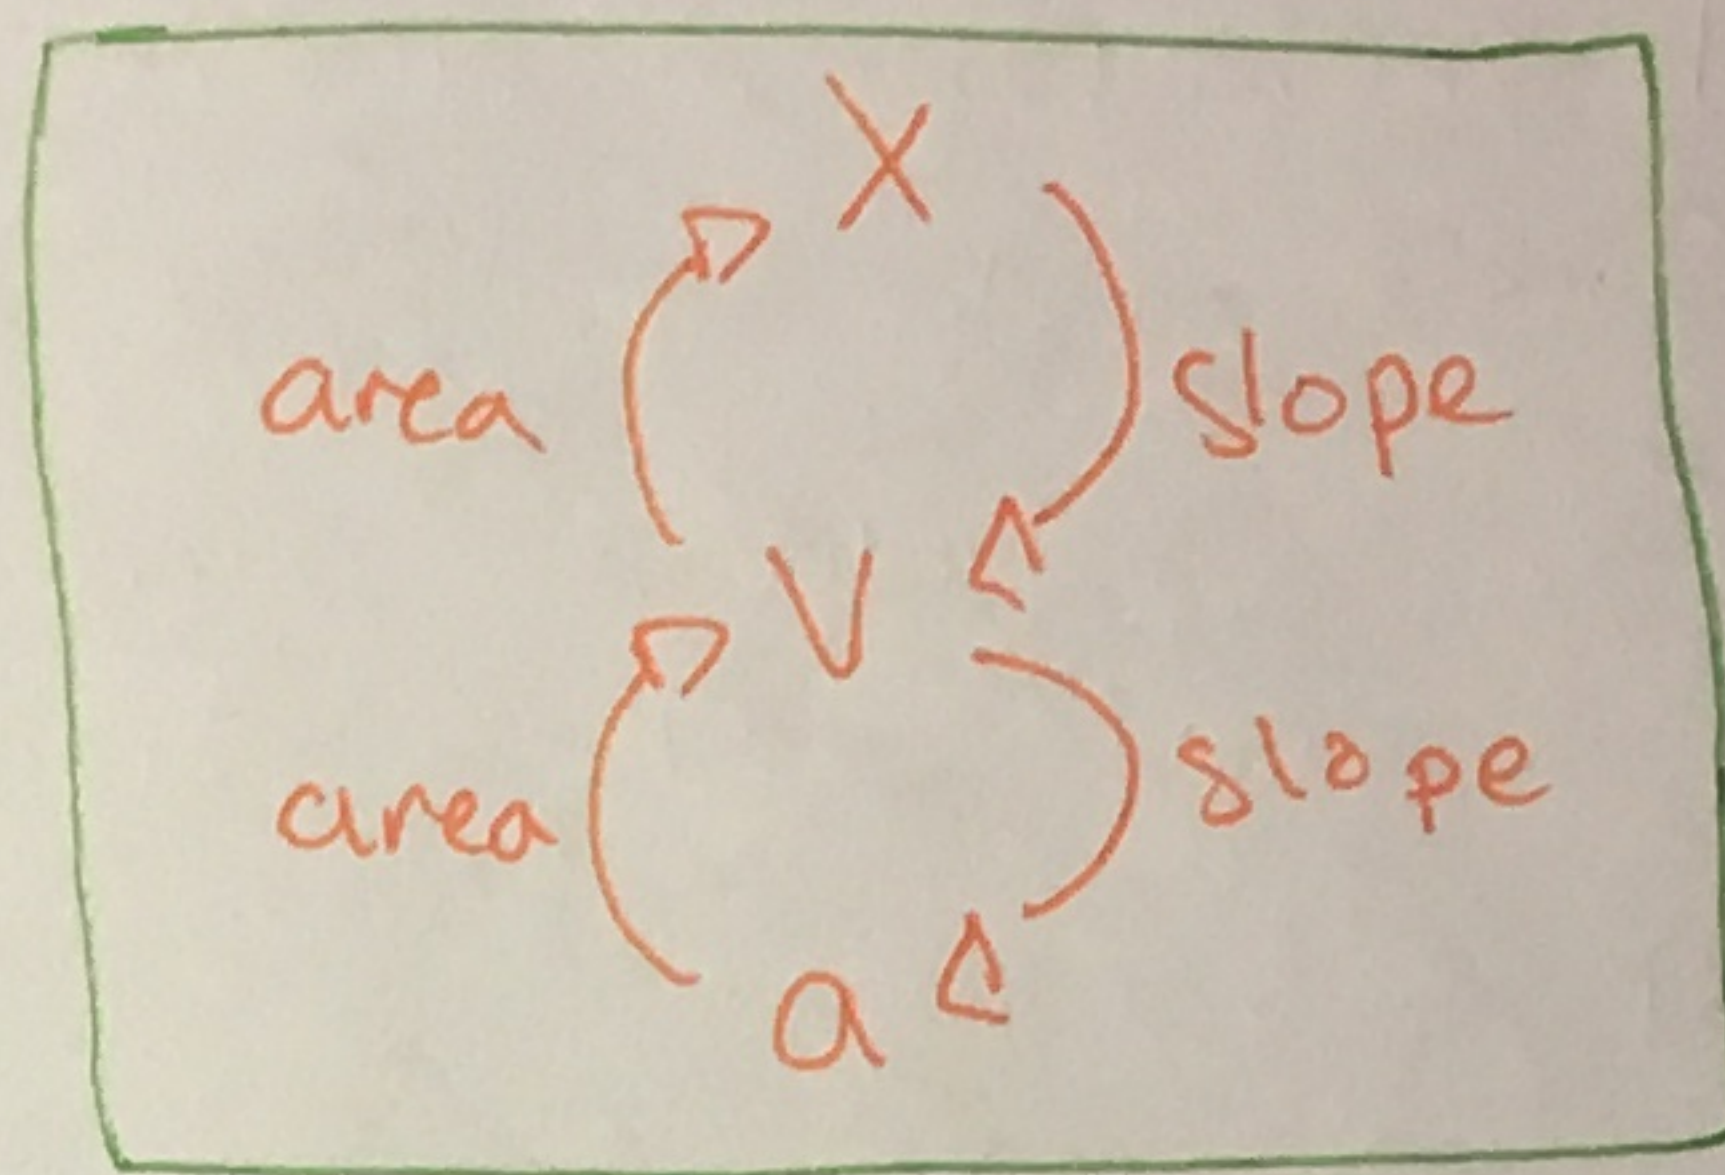 X
area slope
V
area slope
a